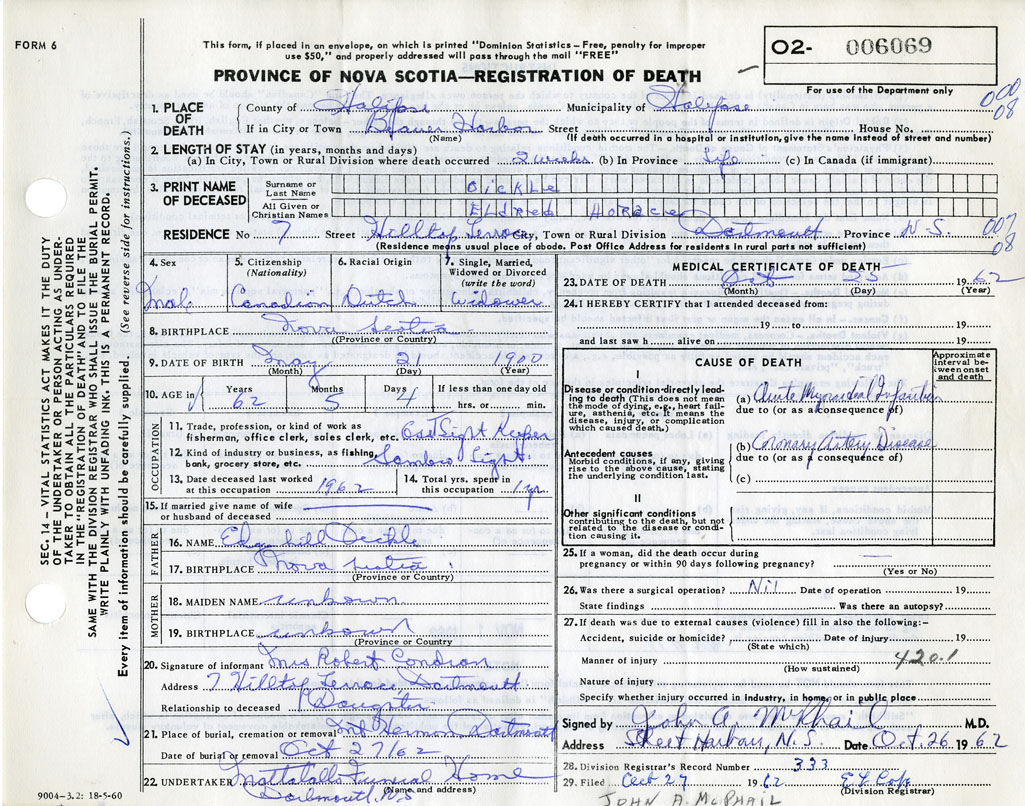 FORM 6
This form, if placed in an envelope, on which is printed "Dominion Statistics – Free, penalty for improper
use $50," and properly addressed will pass through the mail "FREE"
PROVINCE OF NOVA SCOTIA—REGISTRATION OF DEATH
02- 006069
For use of the Department only
000
08
1. PLACE OF DEATH County of Halifax Municipality of Halifax
If in City or Town Beaver Harbor Street House No.
(Name) (If death occurred in a hospital or institution, give the name instead of street and number)
2. LENGTH OF STAY (in years, months and days)
(a) In City, Town or Rural Division where death occurred 2 weeks (b) In Province Life (c) In Canada (if immigrant)
3. PRINT NAME OF DECEASED
Surname or Last Name DICKLE
All Given or Christian Names ELDRED HORACE
RESIDENCE No 7 Street Hilltop Terrace City, Town or Rural Division Dartmouth Province N.S.
007
08
(Residence means usual place of abode. Post Office Address for residents in rural parts not sufficient)
4. Sex Mal
5. Citizenship (Nationality) Canadian
6. Racial Origin Dutch
7. Single, Married, Widowed or Divorced (write the word) Widower
8. BIRTHPLACE Nova Scotia
(Province or Country)
9. DATE OF BIRTH May 21 1900
(Month) (Day) (Year)
10. AGE in Years 62 Months 5 Days 4 If less than one day old hrs. or min.
OCCUPATION
11. Trade, profession, or kind of work as
fisherman, office clerk, sales clerk, etc. Light Keeper
12. Kind of industry or business, as fishing,
bank, grocery store, etc. Sambro Light
13. Date deceased last worked at this occupation 1962
14. Total yrs. spent in this occupation 1 yr
15. If married give name of wife
or husband of deceased
FATHER
16. NAME Edgehill Deckle
17. BIRTHPLACE Nova Scotia
(Province or Country)
MOTHER
18. MAIDEN NAME unkown
19. BIRTHPLACE unkown
(Province or Country)
20. Signature of informant Mrs Robert Condran
Address 7 Hilltop Terrace, Dartmouth
Relationship to deceased Daughter
21. Place of burial, cremation or removal Mt Hermon Dartmouth
Date of burial or removal Oct 27/62
22. UNDERTAKER Mattatalls Funeral Home
(Name and address)
Dartmouth, N.S
9004–3.2: 18-5-60
MEDICAL CERTIFICATE OF DEATH
23. DATE OF DEATH Oct 25 1962
(Month) (Day) (Year)
24. I HEREBY CERTIFY that I attended deceased from:
19 to 19
and last saw h alive on 19
CAUSE OF DEATH
Approximate interval between onset and death
I
Disease or condition directly leading to death (This does not mean the mode of dying, e.g., heart failure, asthenia, etc. It means the disease, injury, or complication which caused death.)
(a) Acute Myocardial Infarction
due to (or as a consequence of)
Antecedent causes
Morbid conditions, if any, giving rise to the above cause, stating the underlying condition last.
(b) Coronary Artery Disease
due to (or as a consequence of)
(c)
II
Other significant conditions
contributing to the death, but not related to the disease or condition causing it.
25. If a woman, did the death occur during
pregnancy or within 90 days following pregnancy?
(Yes or No)
26. Was there a surgical operation? Nil Date of operation 19
State findings Was there an autopsy?
27. If death was due to external causes (violence) fill in also the following:–
Accident, suicide or homicide? Date of injury 19
(State which)
Manner of injury 420.1
(How sustained)
Nature of injury
Specify whether injury occurred in industry, in home, or in public place
Signed by John A. McPhail M.D.
Address Sheet Harbour, N.S. Date Oct. 26 1962
28. Division Registrar's Record Number 333
29. Filed Oct 29 1962
(Division Registrar)
JOHN A. McPHAIL
SEC. 14 – VITAL STATISTICS ACT MAKES IT THE DUTY
OF THE UNDERTAKER OR PERSON ACTING AS UNDER-
TAKER TO OBTAIN ALL THE PARTICULARS REQUIRED
IN THE "REGISTRATION OF DEATH" AND TO FILE THE
SAME WITH THE DIVISION REGISTRAR WHO SHALL ISSUE THE BURIAL PERMIT.
WRITE PLAINLY WITH UNFADING INK. THIS IS A PERMANENT RECORD.
Every item of information should be carefully supplied. (See reverse side for instructions.)